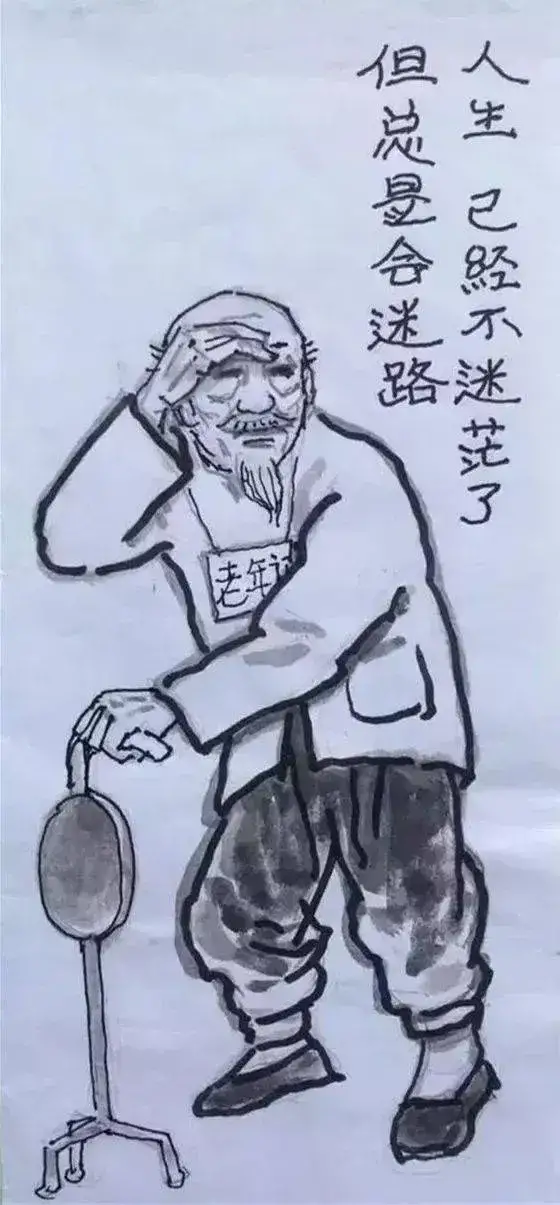 人生 已经不迷茫了
但总是会迷路
老年证